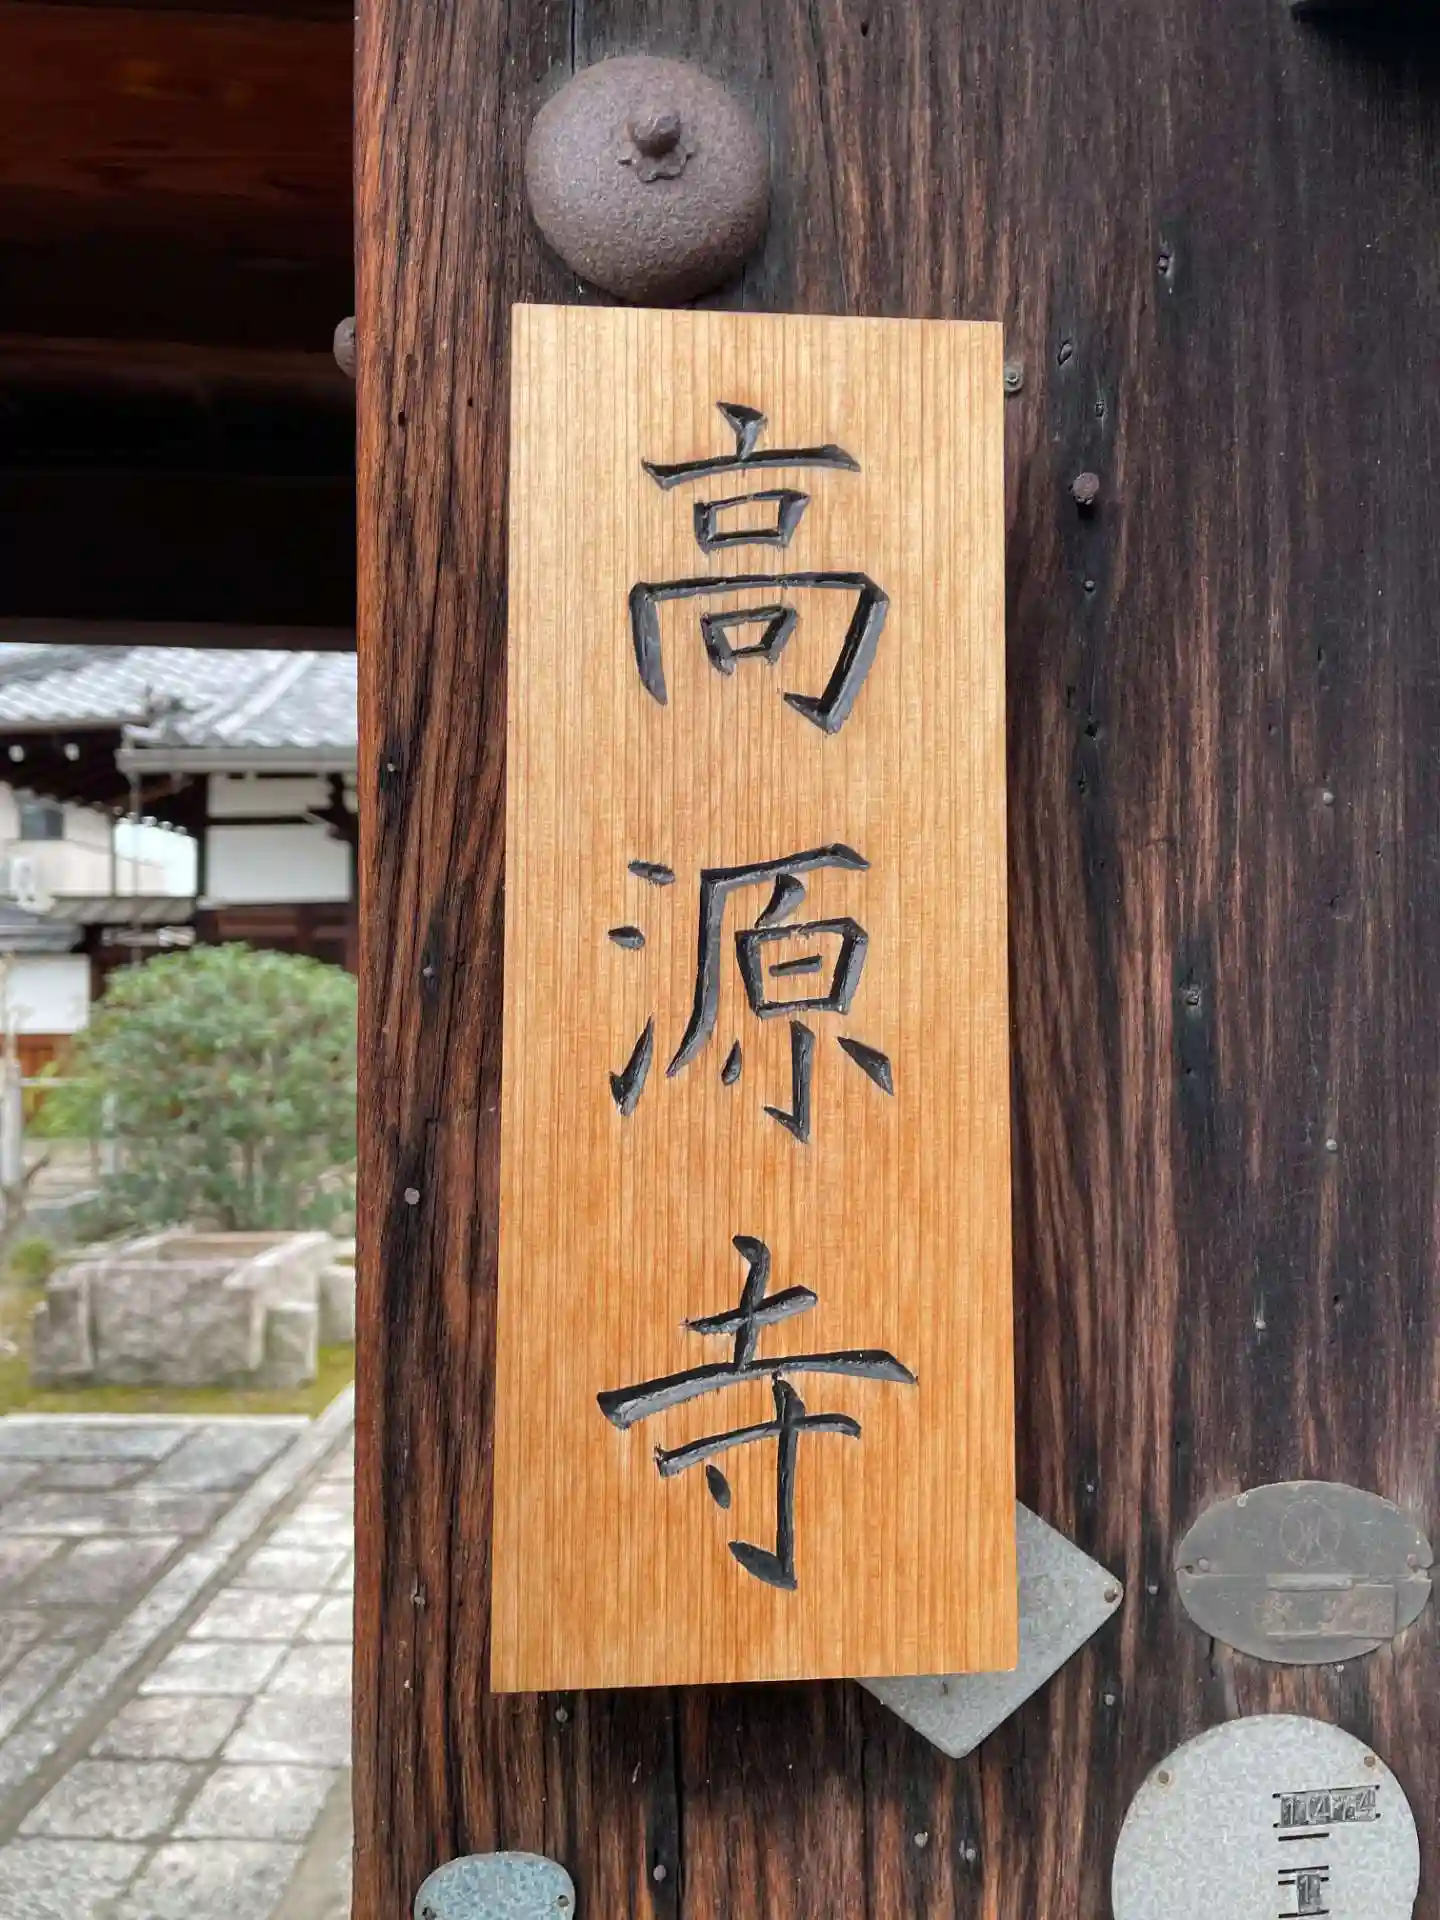 高源寺